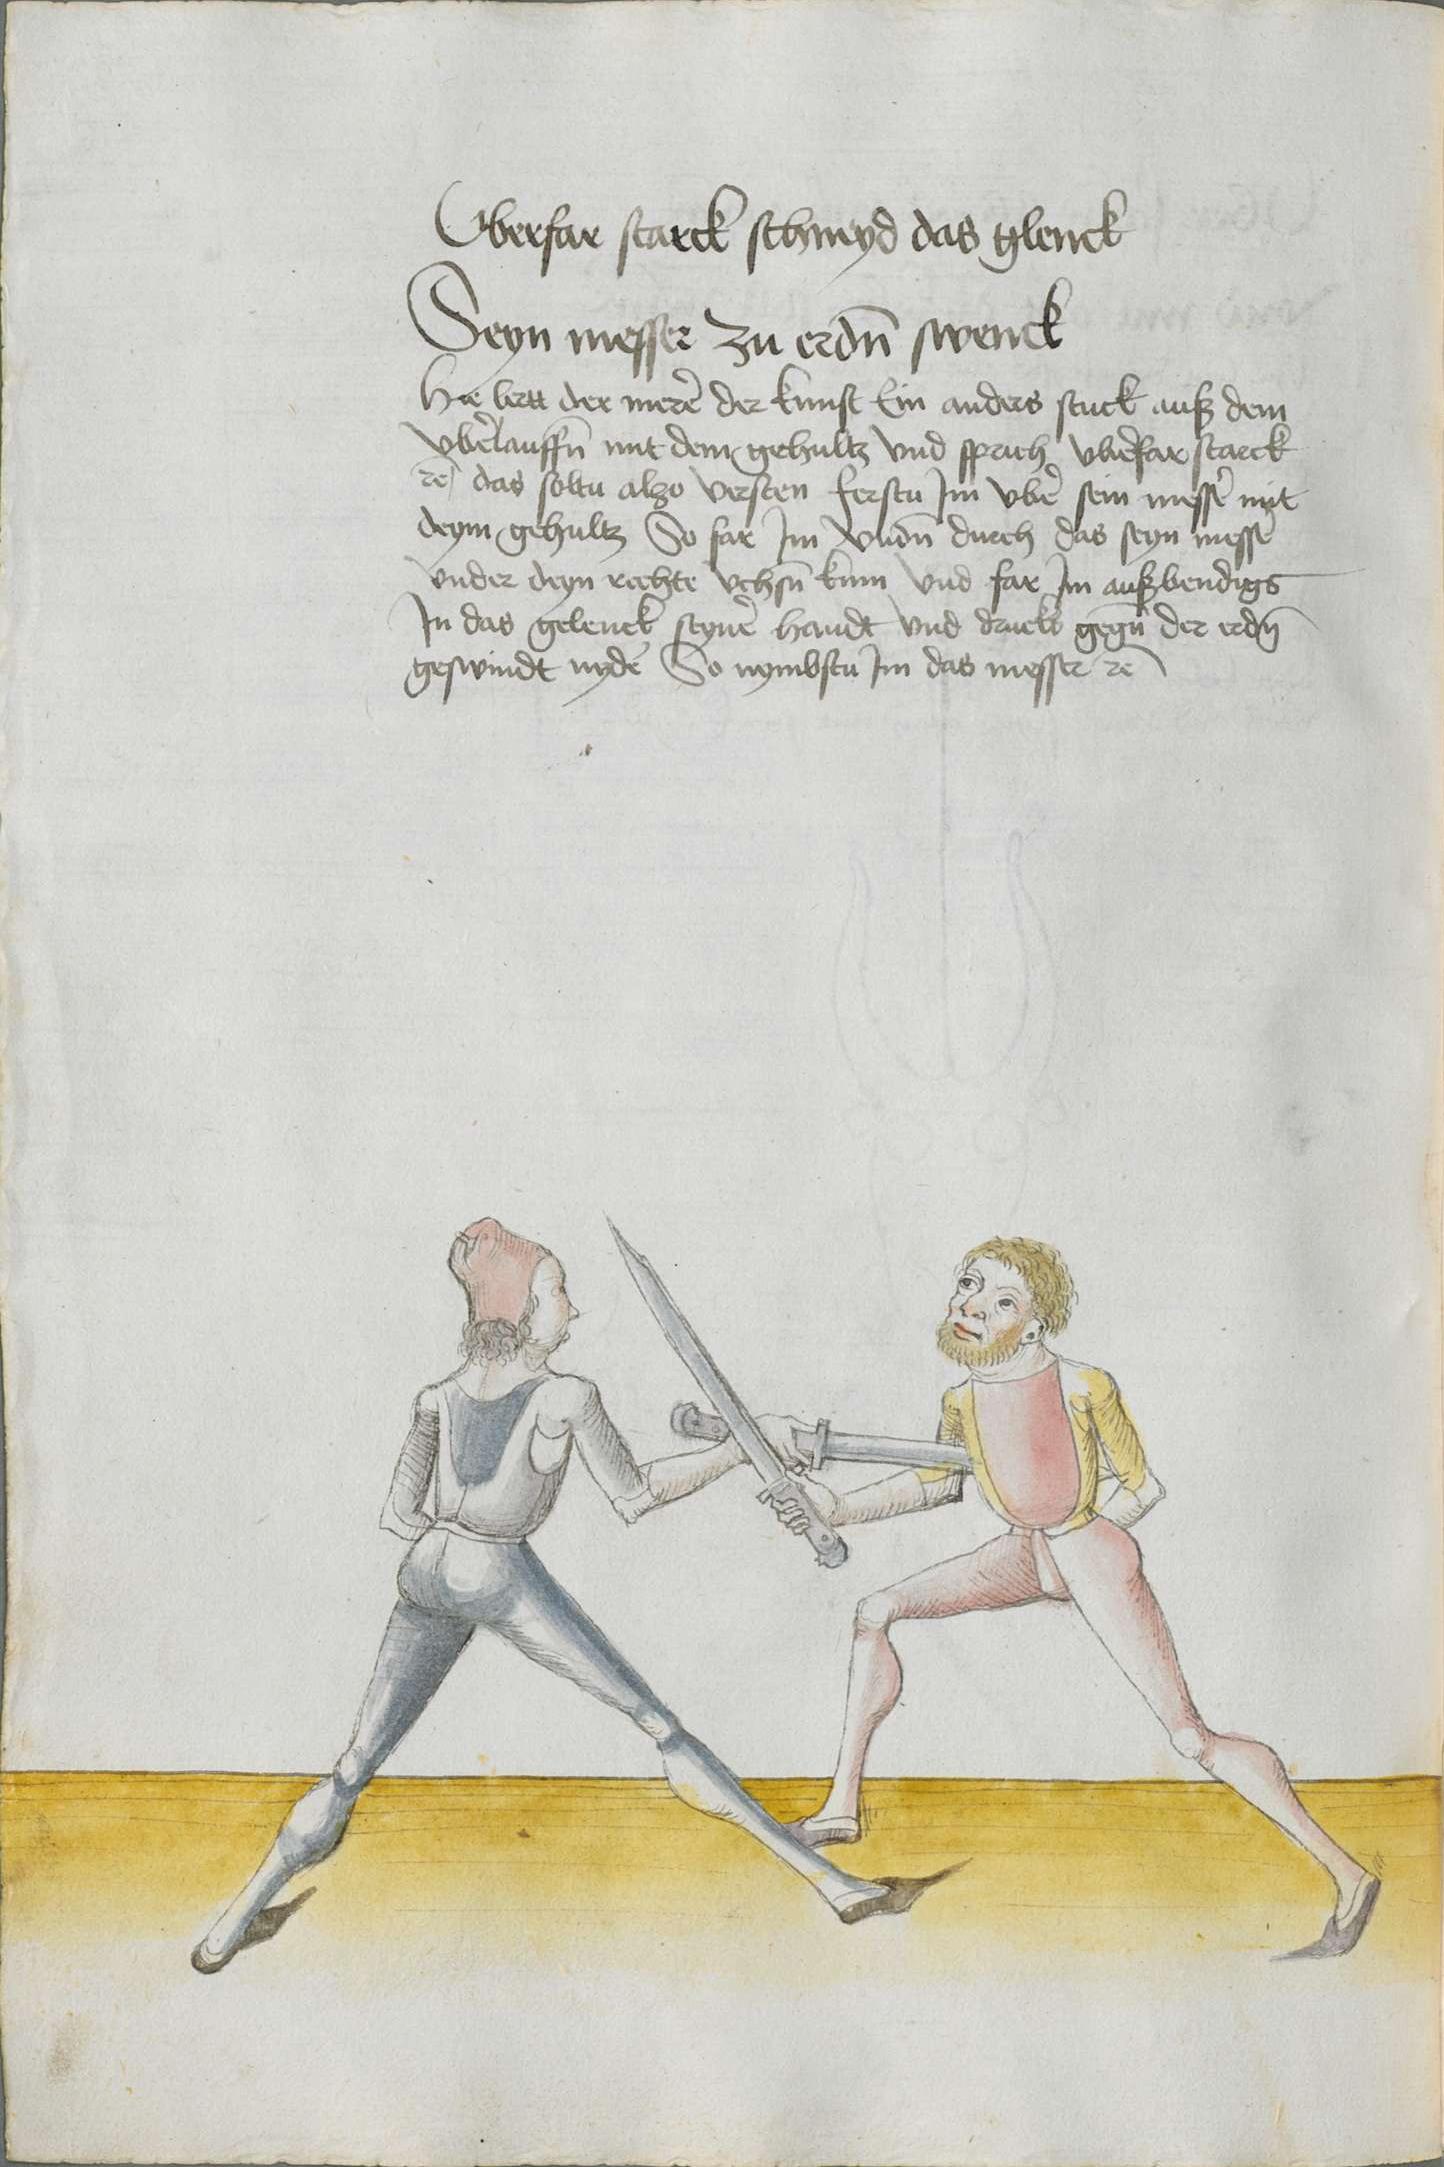 Vberfar starck schneyd das glenck
Seyn messer zu erdñ swenck
Hie lertt der merẽ der kunst Ein anders stuck auß dem
vbẽlauffñ mit dem gehultz vnd sprich vbẽfar starck
rẽ das soltu alzo versten ferstu Im vbẽ sein messẽ mit
deym gehultz So far Im vndñ durch das seyn messẽ
vnder deyn rechte vchsñ kum vnd far Im außbendigs
In das gelenck seynẽ handt vnd druck gegñ der erdñ
geswindt nydẽ So nymbstu Im das messer rẽ